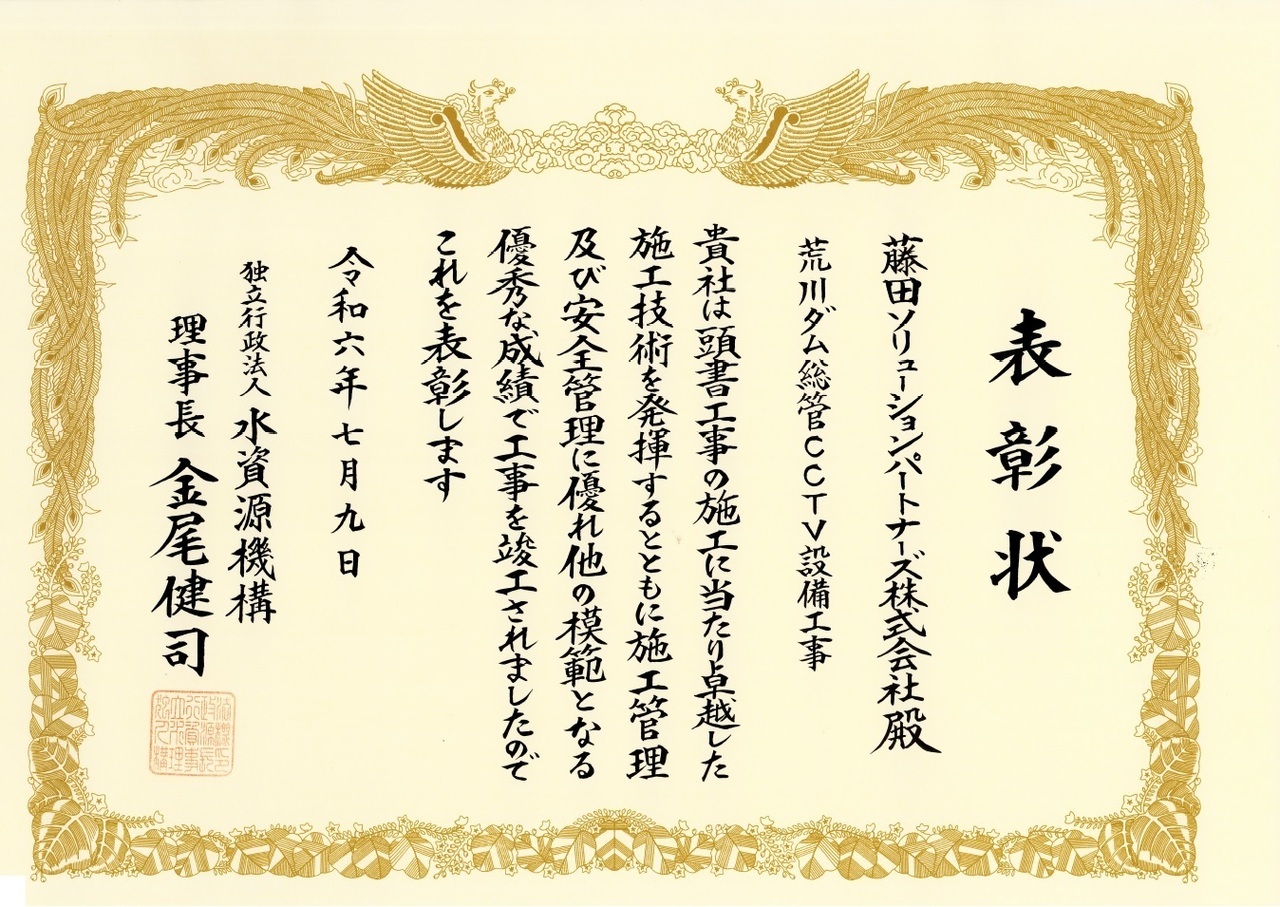 表彰状
藤田ソリューションパートナーズ株式会社殿
荒川ダム総管CCTV設備工事
貴社は頭書工事の施工に当たり卓越した
施工技術を発揮するとともに施工管理
及び安全管理に優れ他の模範となる
優秀な成績で工事を竣工されましたので
これを表彰します
令和六年七月九日
独立行政法人水資源機構
理事長 金尾健司